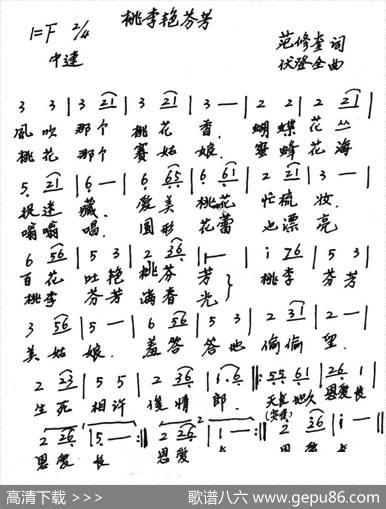 桃李艳芬芳
1=F 2/4
中速
范修奎 词
伏登全 曲
3 3 | 3 21 | 3 21 | 3 — | 2 2 | 2 21 |
風吹 那个 桃花 香. 蝴蝶 花丛
桃花 那个 赛姑 娘. 蜜蜂 花海
5 21 | 6 — | 6 65 | 6 61 | 2 21 | 3 — |
捉迷 藏. 爱美 桃花 忙梳 妆.
嗡嗡 唱. 圆形 花蕾 也漂 亮
6 56 | 5 3 | 2 36 | 1 — | i 76 | 5 3 |
百花 吐艳 桃芬 芳 桃李 芬芳
桃李 芬芳 满春 光
3 56 | 5 — | 6 56 | 5 3 | 2 31 | 2 — |
美姑 娘. 羞答 答地 偷偷 望.
2 23 | 5 5 | 2 36 | 1. 6 |: 55 61 | 26 1 |
生死 相许 俊情 郎. 天长地久 恩爱长
2 26 | 5 — :| 2 26 | 1 — :| 2 36 | i — |
恩爱 长 恩爱 长 恩爱 长
高清下载 >>>
歌谱八六 www.gepu86.com